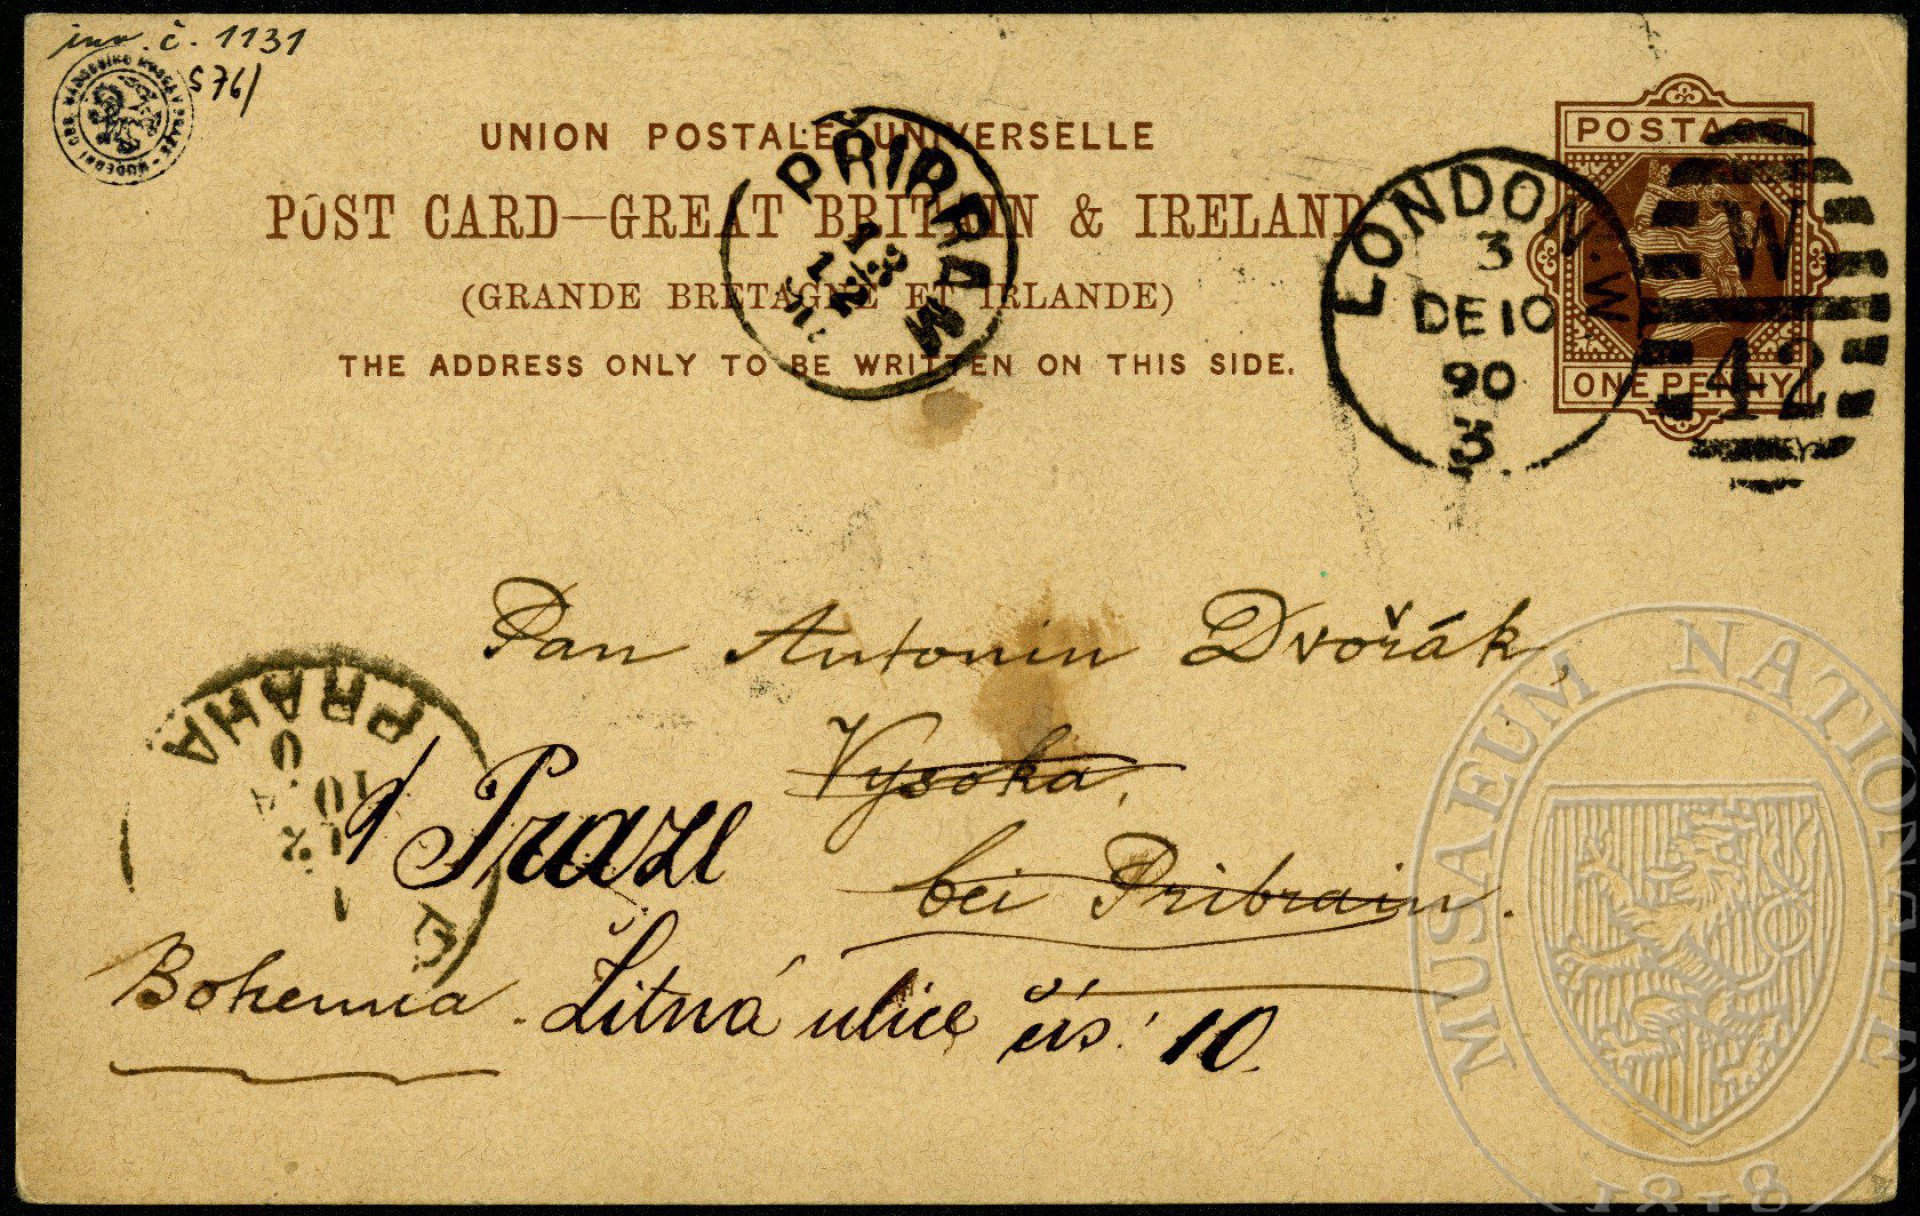 inv. č. 1131
S 76/
UNION POSTALE UNIVERSELLE
POST CARD—GREAT BRITAIN & IRELAND
(GRANDE BRETAGNE ET IRLANDE)
THE ADDRESS ONLY TO BE WRITTEN ON THIS SIDE.
POSTAGE
ONE PENNY
PŘIBRAM
LONDON. W
3
DE 10
90
3
W
42
Pan Antonin Dvořák,
Vysoka,
v Praze
bei Pribram.
Bohemia.
Žitná ulice čís. 10.
PRAHA
MUSAEUM NATIONALE
1818